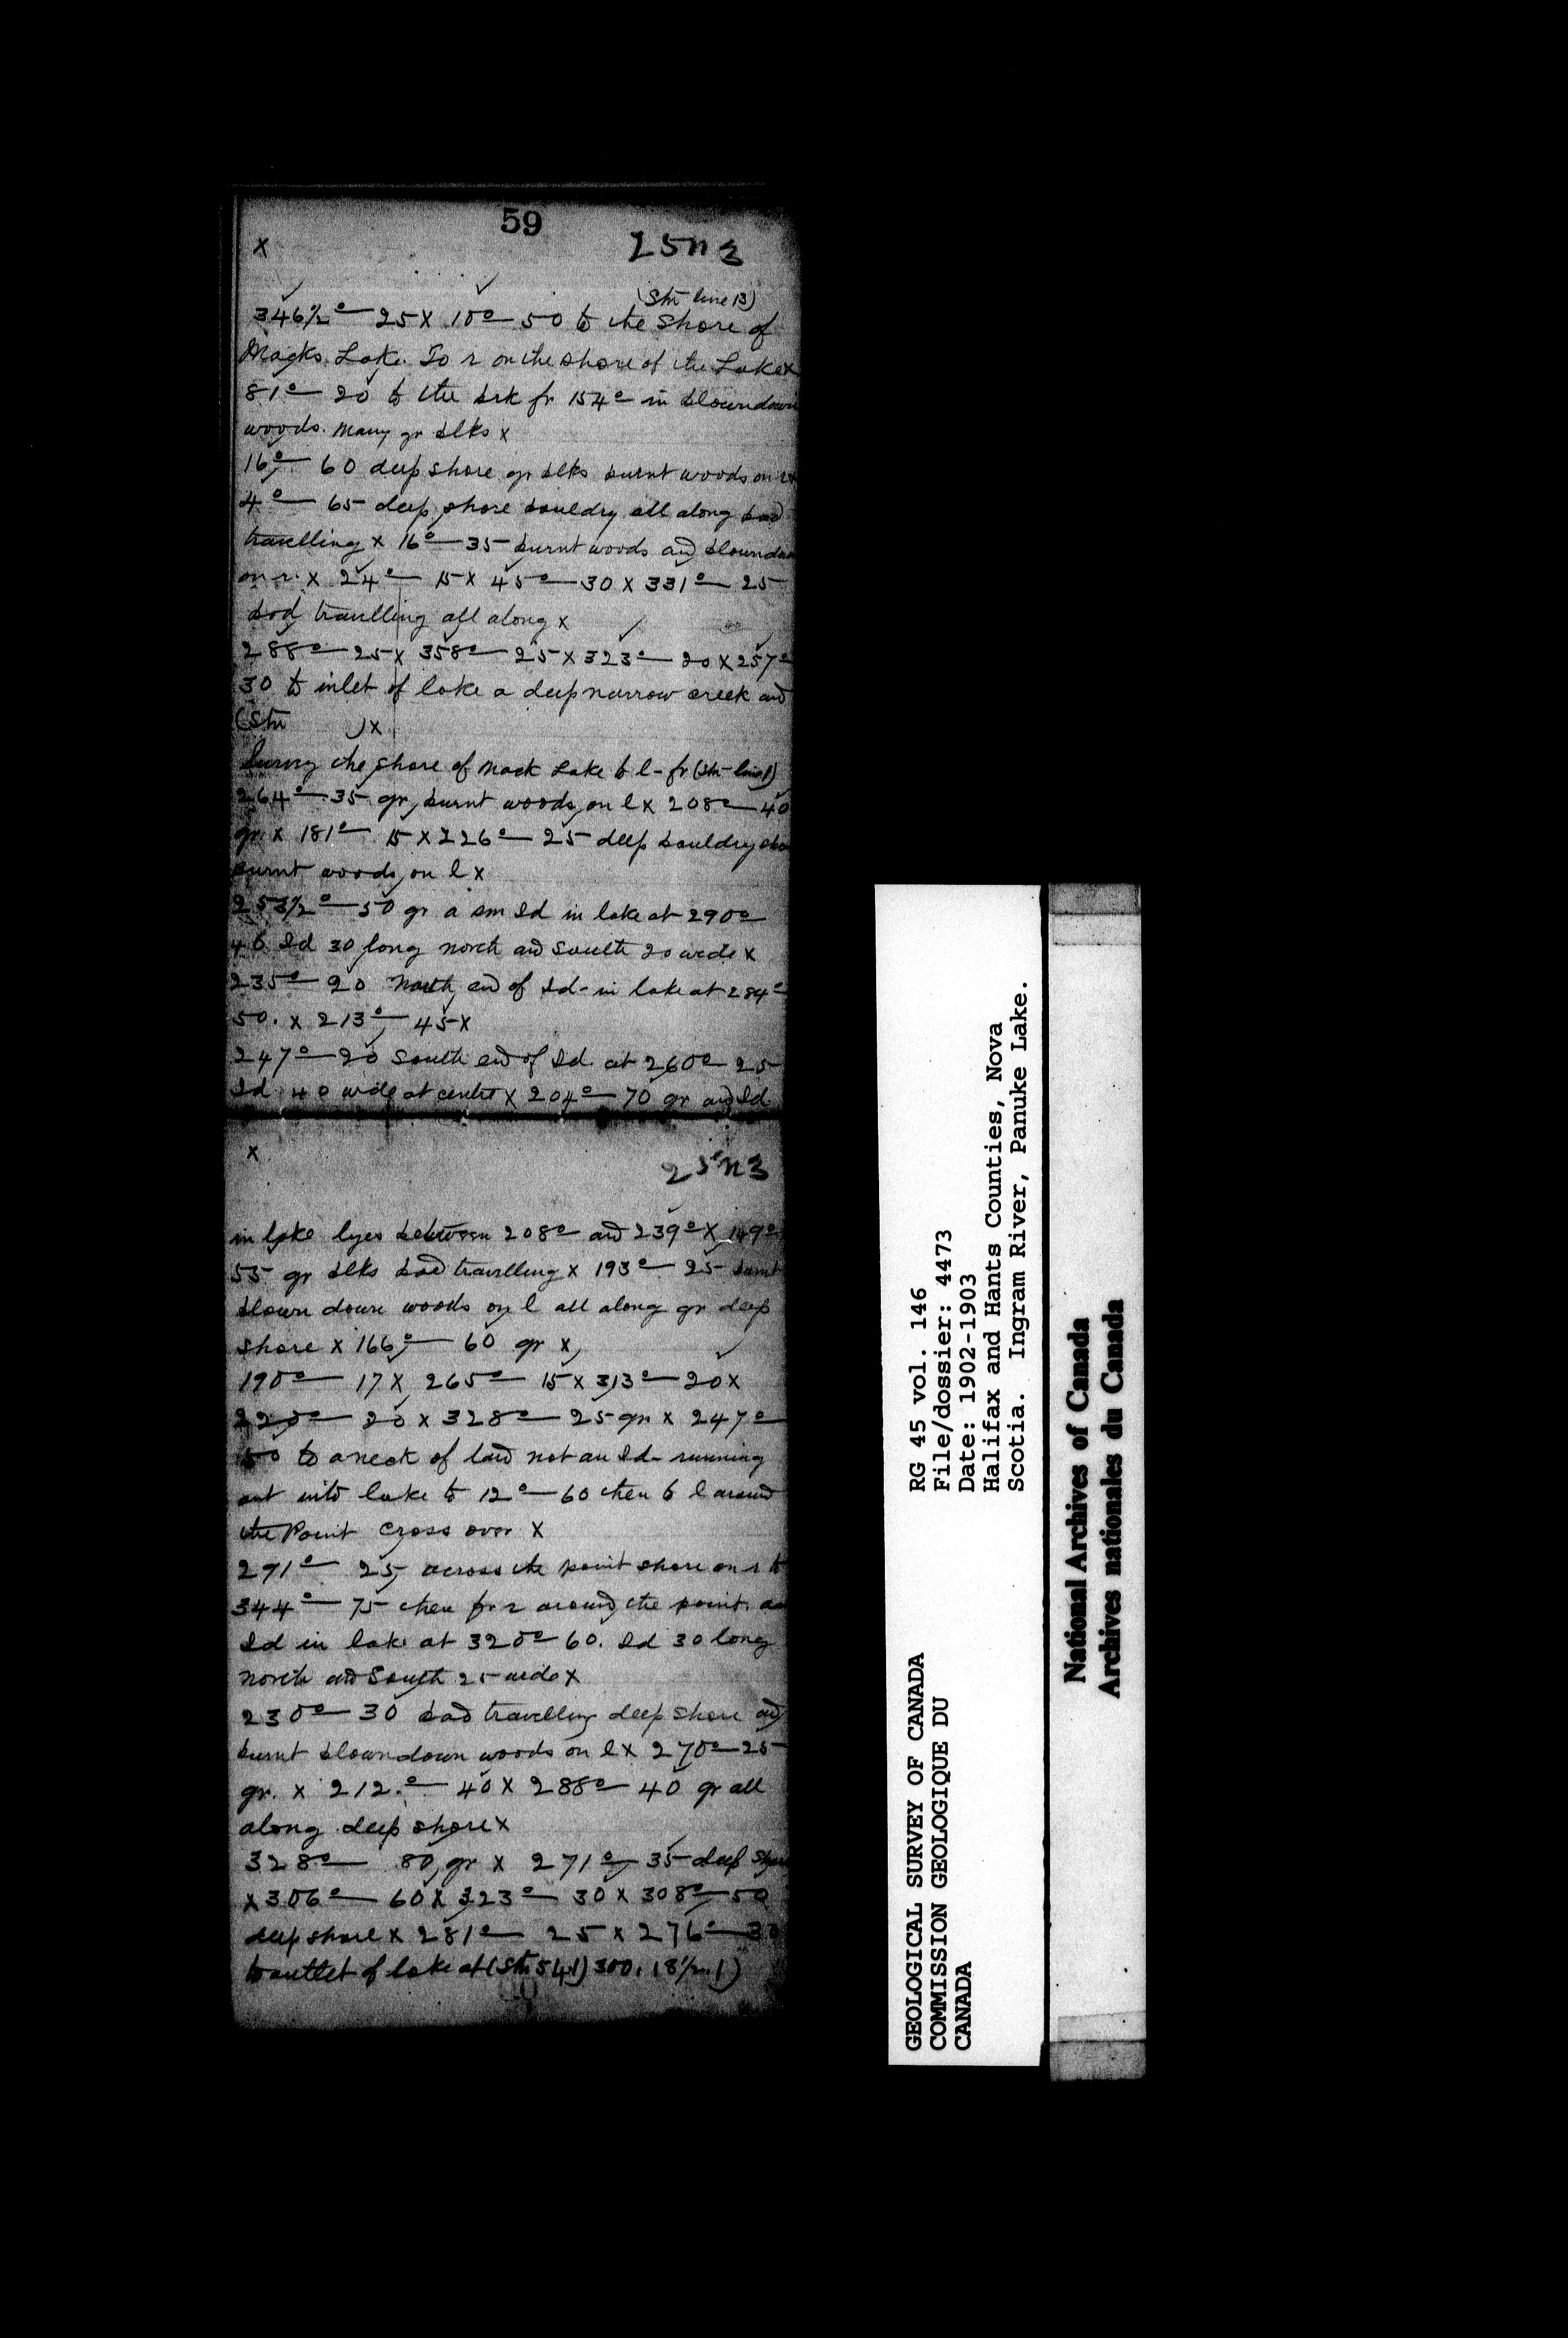 59
x 25N3
(Stn line 13)
346½° — 25 x 10° — 50 to the shore of
Macks Lake. To r on the shore of the Lake x
81° — 20 to the brk fr 154° in blowndown
woods. Many gr blks x
16° — 60 deep shore gr blks burnt woods on r x
4° — 65 deep shore bouldry all along bad
travelling x 16° — 35 burnt woods and blowndown
on r. x 24° — 15 x 45° — 30 x 331° — 25
bad travelling all along x
288° — 25 x 358° — 25 x 323° — 20 x 257°
30 to inlet of lake a deep narrow creek and
(Stn ) x
Survey the shore of Mack Lake to l - fr (Stn line 1)
264° — 35 gr, burnt woods on l x 208° — 40
gr. x 181° — 15 x 226° — 25 deep bouldry
burnt woods on l x
253½° — 50 gr a sm Id in lake at 290°
Id 30 long north and south 20 wide x
235° — 20 North end of Id - in lake at 284°
50. x 213° — 45 x
247° — 20 South end of Id. at 260° 25
Id 40 wide at centre x 204° — 70 gr and Id
x 25N3
in lake lyes between 208° and 239° x 149°
55 gr blks bad travelling x 193° — 25 burnt
blown down woods on l all along gr deep
shore x 166° — 60 gr x
190° — 17 x 265° — 15 x 313° — 20 x
220° — 20 x 328° — 25 gr x 247°
50 to a neck of land not an Id - running
out into lake to 12° — 60 then to l around
the Point cross over x
271° — 25 across the point shore on r to
344° — 75 then fr r around the point. an
Id in lake at 320° 60. Id 30 long
north and South 25 wide x
230° — 30 bad travelling deep shore and
burnt blowndown woods on l x 270° — 25
gr. x 212.° — 40 x 288° — 40 gr all
along deep shore x
328° — 80 gr x 271° — 35 deep shore
x 306° — 60 x 323° — 30 x 308° — 50
deep shore x 281° — 25 x 276° — 30
to outlet of lake at (Stn 54.1) 300. 18½.1)
RG 45 vol. 146
File/dossier: 4473
Date: 1902-1903
Halifax and Hants Counties, Nova
Scotia. Ingram River, Panuke Lake.
GEOLOGICAL SURVEY OF CANADA
COMMISSION GEOLOGIQUE DU
CANADA
National Archives of Canada
Archives nationales du Canada